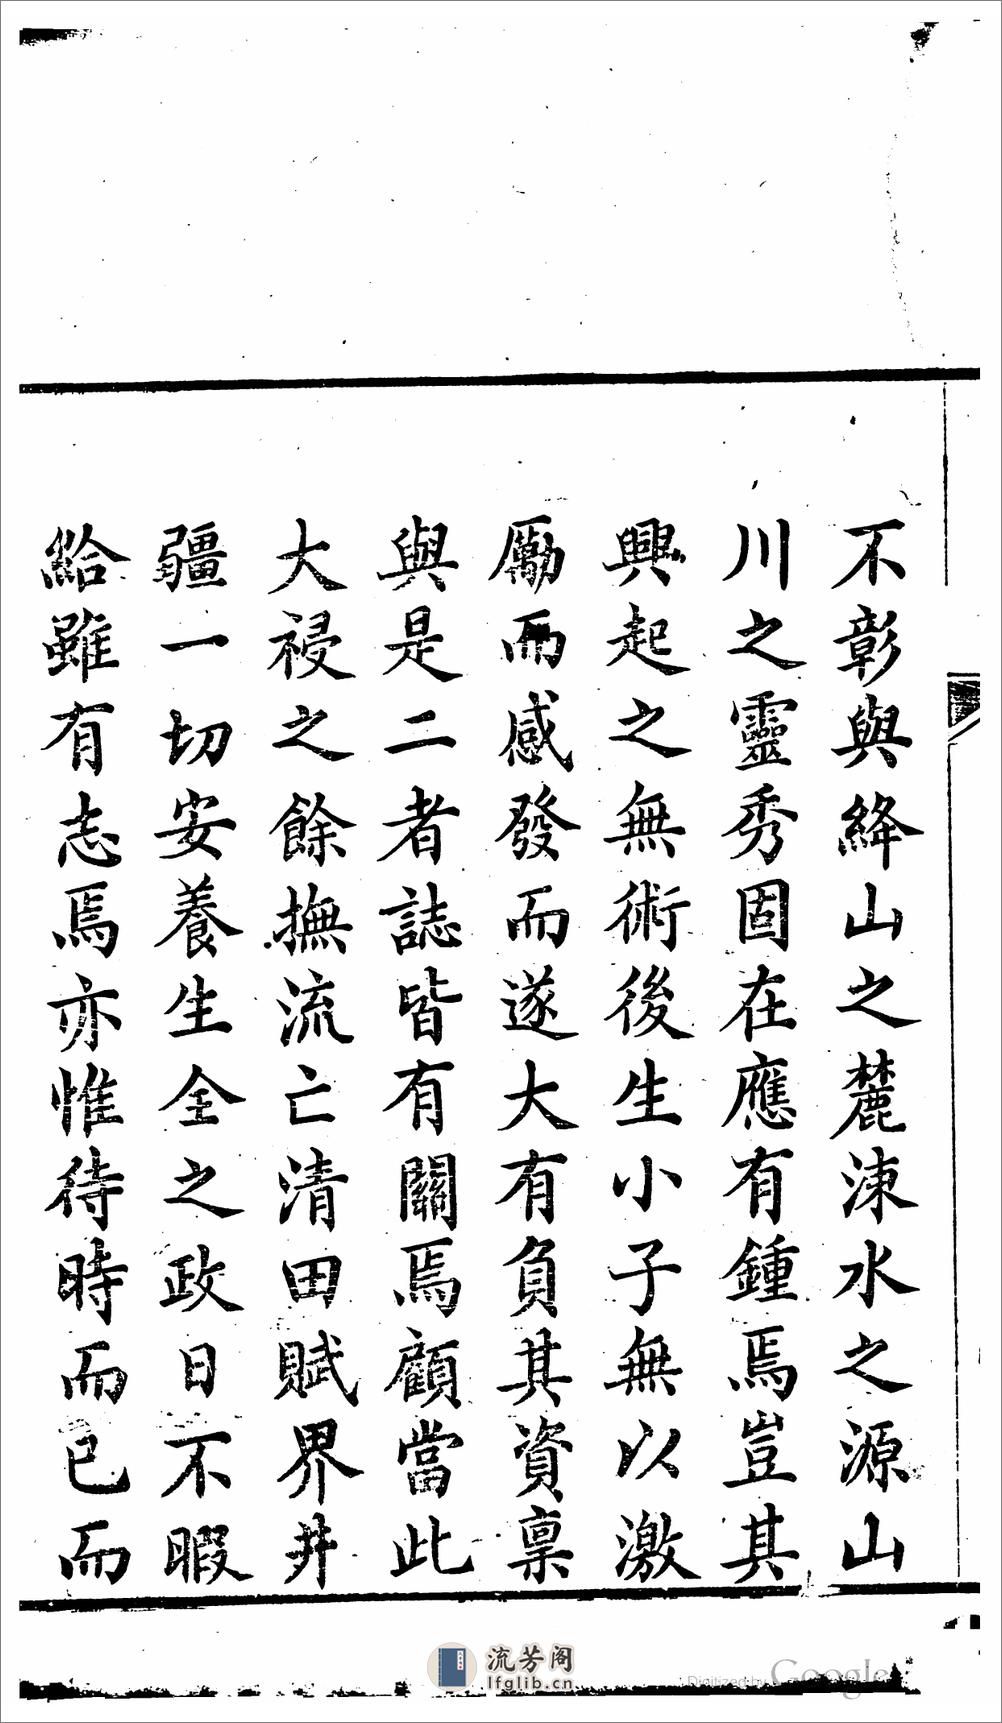 不彰與絳山之麓涑水之源山
川之靈秀固在應有鍾焉豈其
興起之無術後生小子無以激
勵而感發而遂大有負其資禀
與是二者誌皆有關焉顧當此
大祲之餘撫流亡清田賦界井
疆一切安養生全之政日不暇
給雖有志焉亦惟待時而已而
流芳阁
lfglib.cn
Digitized by Google